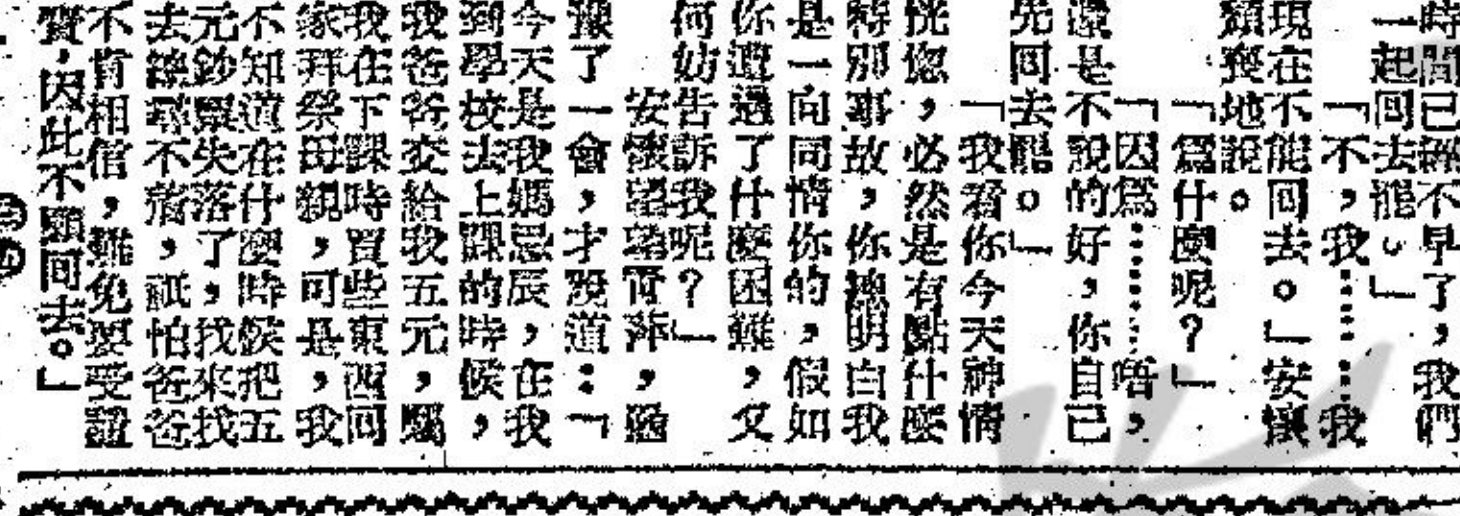 時間已經不早了，我們
一起回去罷。」
「不，我……我
現在不能回去。」安懷
頹喪地說。
「爲什麼呢？」
「因爲………唔，
還是不說的好，你自己
先回去罷。」
「我看你今天神情
恍惚，必然是有點什麼
特別事故，你總明白我
是一向同情你的，假如
你遭遇了什麼困難，又
何妨告訴我呢？」
安懷望望
豫了一會，才說道：「
今天是我媽忌辰，在我
到學校去上課的時候，
我爸爸交給我五元，囑
我在下課時買些東西回
家拜祭母親，可是，我
不知道在什麼時候把五
元鈔票失落了，找來找
去總尋不落，祇怕爸爸
不肯相信，難免要受證
責，因此不願回去。」